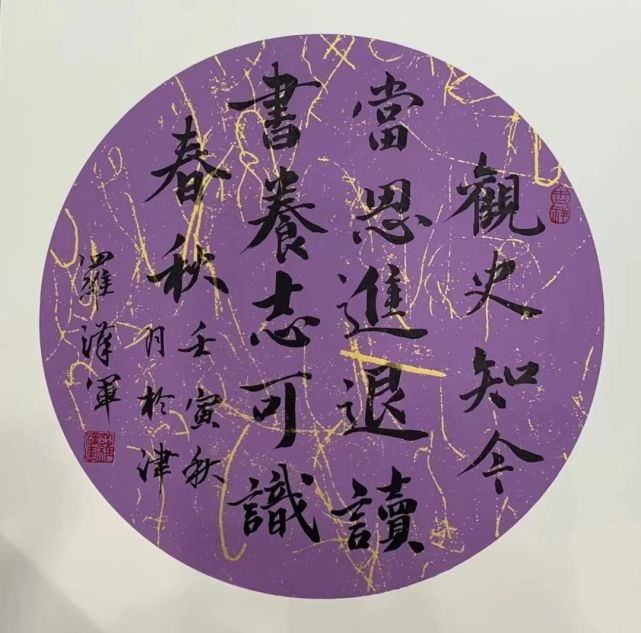 觀史知今
當思進退讀
書養志可識
春秋
壬寅秋
月於津
羅軍
吉祥